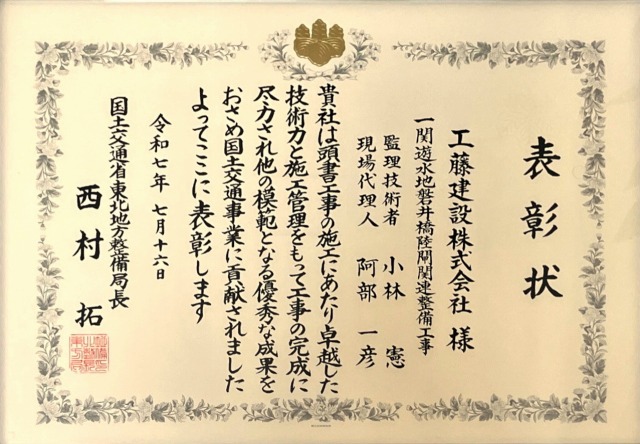 表彰状
工藤建設株式会社 様
一関遊水地磐井橋陸閘関連整備工事
監理技術者 小林 憲
現場代理人 阿部 一彦
貴社は頭書工事の施工にあたり卓越した
技術力と施工管理をもって工事の完成に
尽力され他の模範となる優秀な成果を
おさめ国土交通事業に貢献されました
よってここに表彰します
令和七年 七月十六日
国土交通省東北地方整備局長
西村 拓